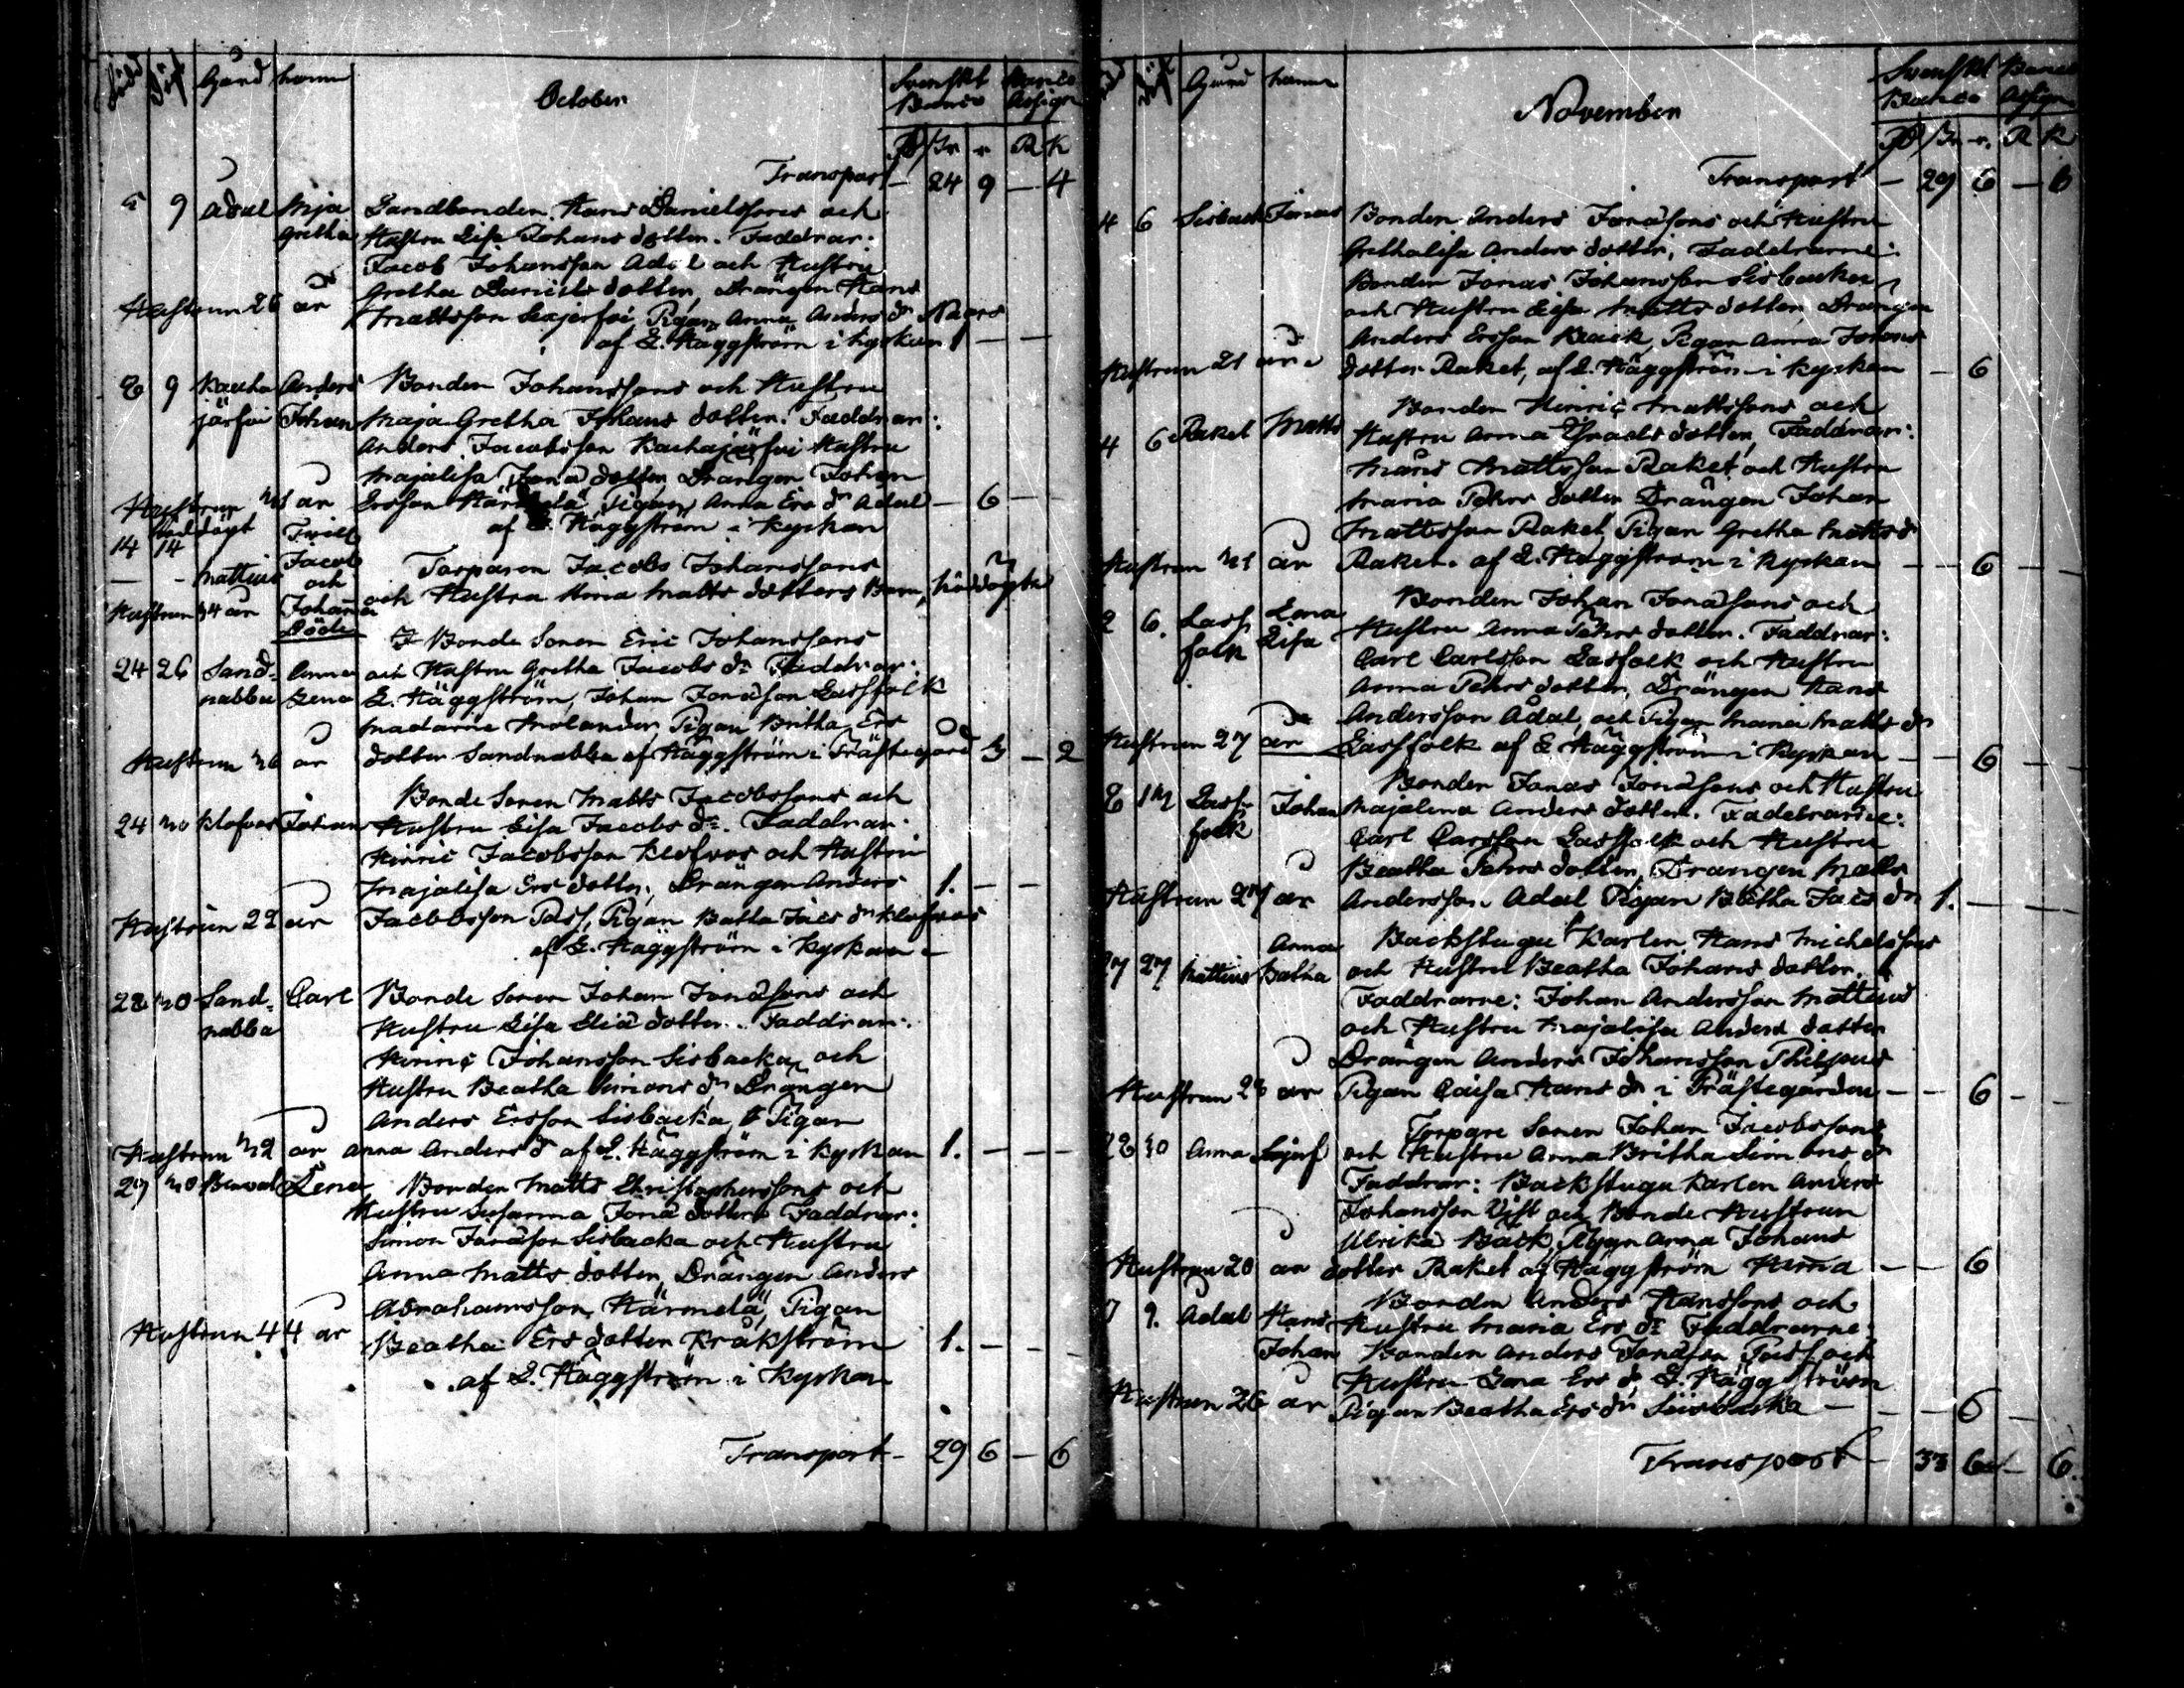 Född Döpt Gård Namn October Svenskt Banco Banco Assign
R Sk r R K
Transport - 24 9 - 4
5 9 Adal Maja Landbonden Hans Danielssons och
Gretha Hustru Lisa Johans dotter. Faddrar:
Jacob Johansson Adal och Hustru
Gretha Daniels dotter, Drängen Hans
Hustrun 26 år Mattsson Pigan Anna Anders dr
af E. Häggström i kyrkan 1 - -
8 9 Kauha Anders Bonden Johanssons och Hustru
järfvi Johan Maja Gretha Johans dotter. Faddrar:
Anders Jacobsson Kauhajärfvi Hustru
Majalisa Jona dotter Drängen Johan
Hustrun år Ersson Härmälä, Pigan Anna Ers dr Adal - 6 -
af E. Häggström i kyrkan
Nöddöpt
14 14 Tvill
Jacob Torparen Jacobs Johanssons
- - Mattius och och Hustru Anna Matts dotters Barn, nöddöpte
Hustrun 34 år Johanna
Döde Bonde Sonen Eric Johanssons
24 26 Sand- Anna och Hustru Gretha Jacobs dr Faddrar:
nabba Lena E. Häggström, Johan Jonasson Lassfolk
Madame Molander, Pigan Britha Ers
Hustrun 36 år dotter Sandnabba af Häggström i Prästegård 3 - 2
Bonde Sonen Matts Jacobssons och
24 30 Klofvas Johan Hustru Lisa Jacobs dr. Faddrar:
Hinric Jacobsson Klofvas och Hustru
Majalisa Ers dotter, Drängen Anders 1. - -
Hustrun 22 år Jacobsson Pass, Pigan Batha Jacs dr Klofvas
af E. Häggström i Kyrkan
28 30 Sand- Carl Bonde Sonen Johan Jonassons och
nabba Hustru Lisa Elia dotter. Faddrar:
Hinric Johansson Sisbacka och
Hustru Beatha Simons dr Drängen
Anders Ersson Sisbacka, Pigan
Hustrun 32 år Anna Anders dr af E. Häggström i kyrkan 1. - - -
29 30 Lena Bonden Matts Christopherssons och
Hustru Susanna Jona dotter Faddrar:
Simon Jonasson Sisbacka och Hustru
Anna Matts dotter, Drängen Anders
Abrahamsson Härmälä, Pigan
Hustrun 44 år Beatha Ers dotter Kråkström 1. - - -
af E. Häggström i Kyrkan
Transport - 29 6 - 6
Gård Namn November Svenskt Banco Banco Assign
R Sk r. R K
Transport - 29 6 - 6
4 6 Sisback Jonas Bonden Anders Jonassons och Hustru
Grethalisa Anders dotter, Faddrarne:
Bonden Jonas Johansson Sisbacka
och Hustru Lisa Matts dotter, Drängen
Anders Ersson Back, Pigan Anna Johans
Hustrun 21 år dotter Raket, af E. Häggström i kyrkan - 6
Bonden Hinric Mattssons och
4 6 Raket Matts Hustru Anna dotter, Faddrar:
Måns Mattsson Raket och Hustru
Maria Pehrs dotter Drängen Johan
Mattsson Raket, Pigan Gretha Matts dr
Hustrun år Raket. af E. Häggström i kyrkan - - 6 - -
Bonden Johan Jonassons och
2 6. Lass Lena Hustru Anna Pehrs dotter. Faddrar:
folk Lisa Carl Carlsson Lasfolk och Hustru
Anna Pehrs dotter, Drängen Hans
Andersson Ådal, och Pigan Maria Matts dr
Hustrun 27 år Lassfolk af E Häggström i Kyrkan - - 6 - -
Bonden Jonas Jonassons och Hustru
8 13 Lass- Johan Majalena Anders dotter. Faddrarne:
folk Carl Carlsson Lassfolk och Hustru
Beatha Pehrs dotter, Drängen Matts
Hustrun år Andersson Adal Pigan Batha Jacs dr 1. - - -
Anna Backstugu Karlen Hans Michelssons
27 27 Mattius Batha och Hustru Beatha Johans dotter.
Faddrarne: Johan Andersson Mattius
och Hustru Majalisa Anders dotter
Drängen Anders Johansson Philpus
Hustrun 28 år Pigan Caisa Hans dr i Prästegården - - 6 - -
Torpare Sonen Johan Jacobssons
28 30 Anna och Hustru Anna Britha Simons dr
Faddrar: Backstugu Karlen Anders
Johansson och Bonde Hustrun
Ulrika Back, Pigan Anna Johans
Hustrun 20 år dotter Raket af Häggström - - 6
7 9. Adal Hans Bonden Anders Hanssons och
Johan Hustru Maria Ers dr Faddrarne:
Bonden Anders Jonasson Pass och
Hustru Lena Ers dr E. Häggström
Hustrun 26 år Pigan Beatha Ers dr Sisbacka - - - 6 -
Transport - 33 6 - 6.